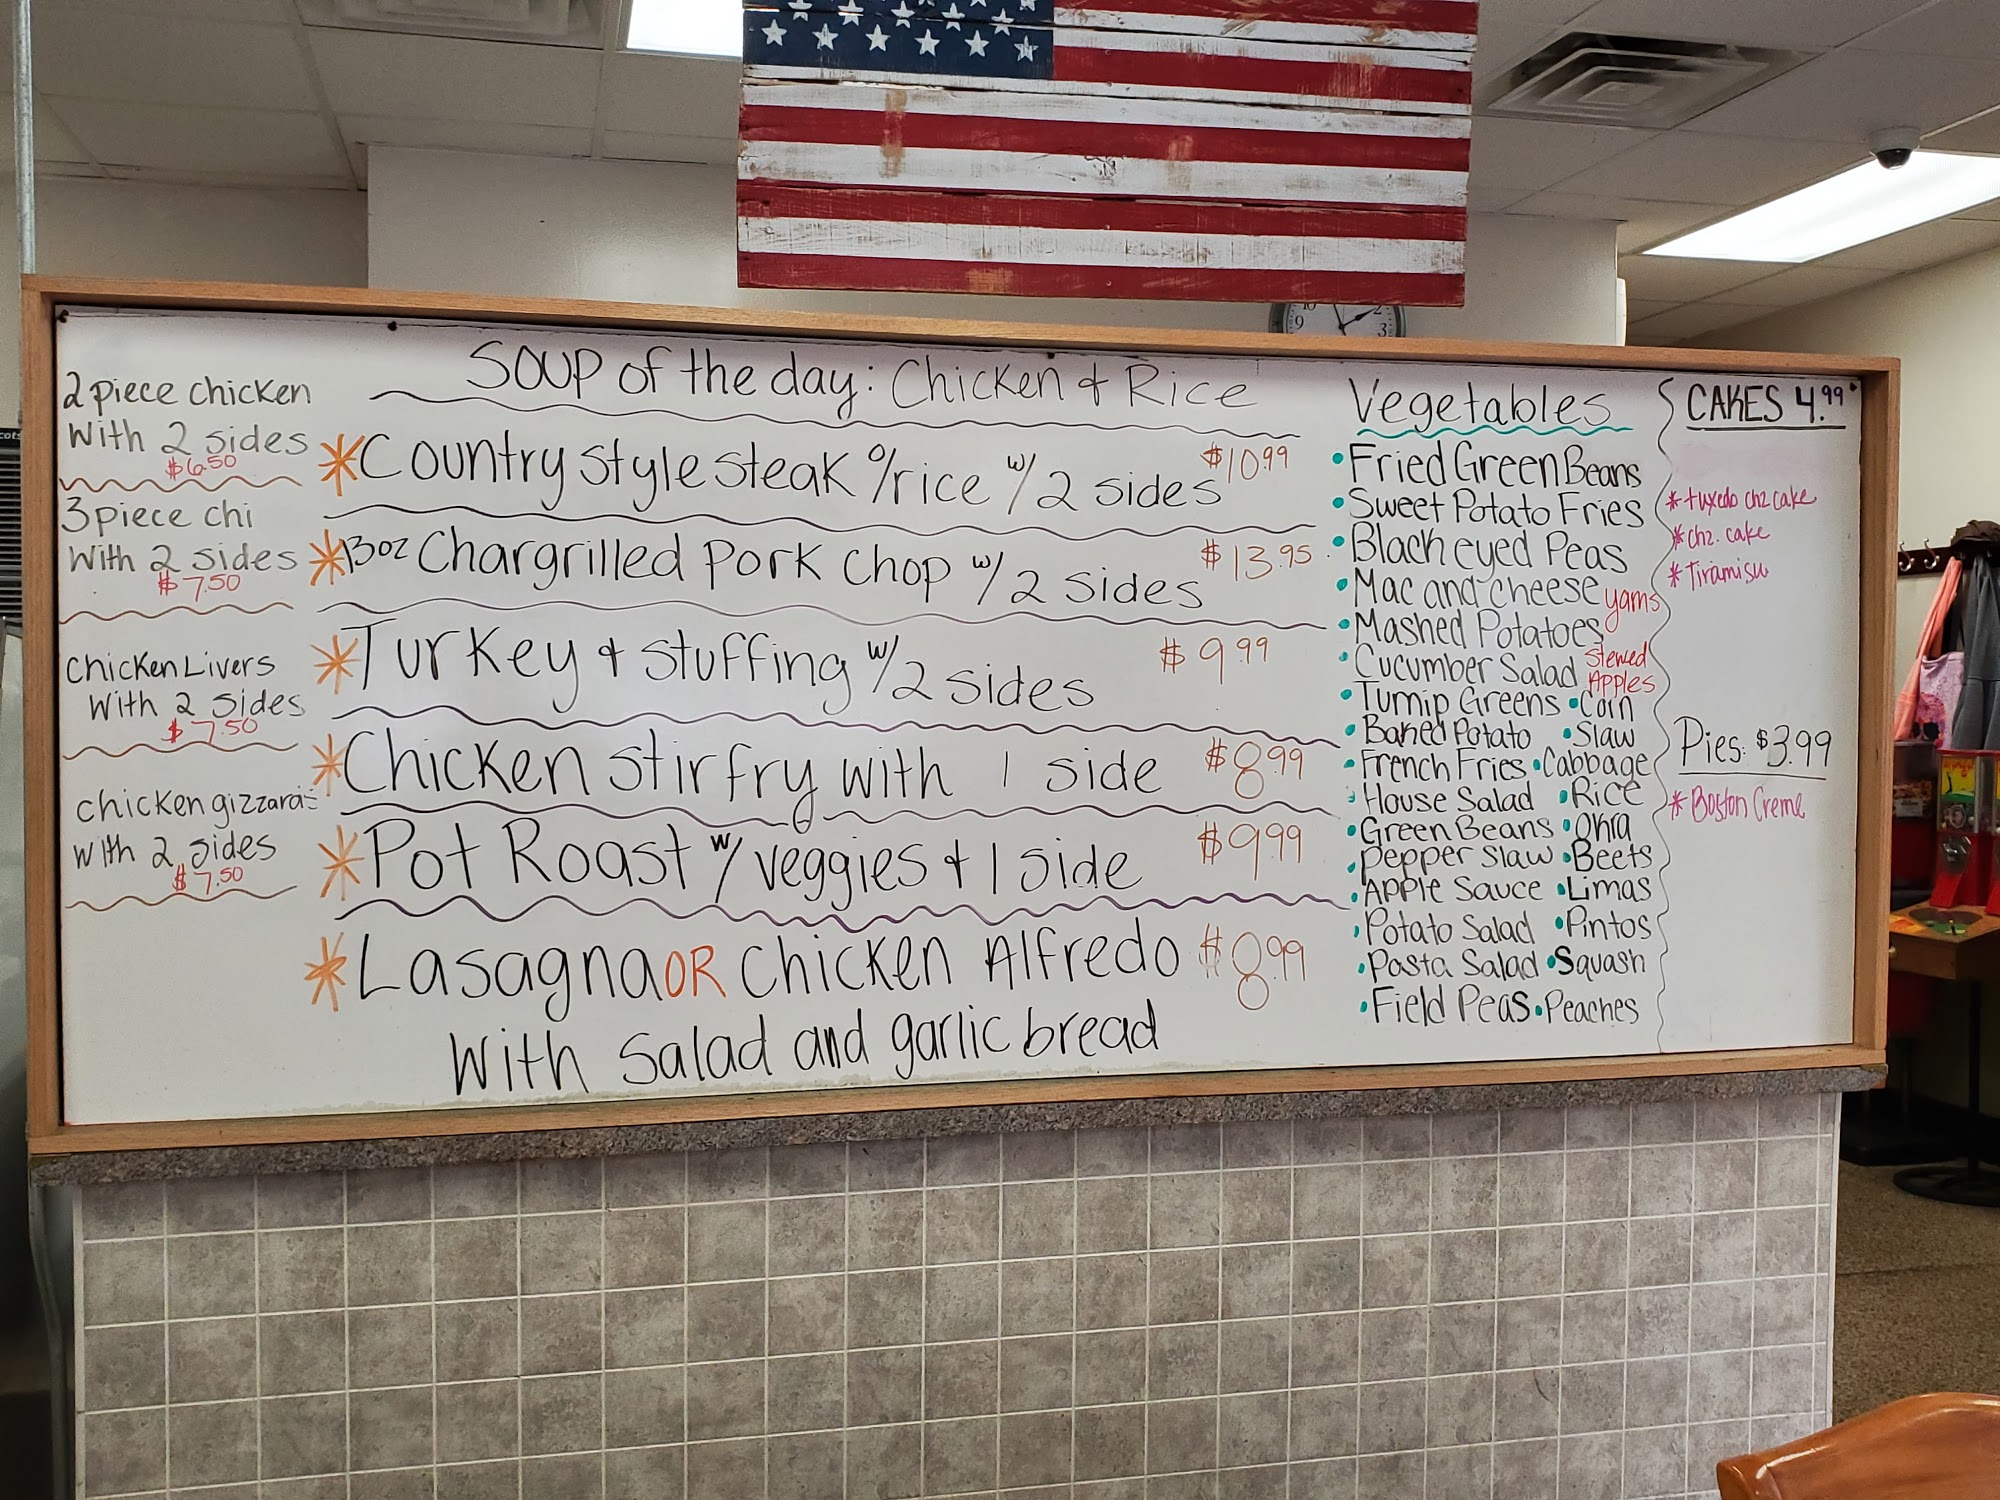 2 piece chicken
With 2 sides
$6.50
3 piece chi
With 2 sides
$7.50
Chicken Livers
With 2 sides
$7.50
chicken gizzards
with 2 sides
$7.50
SOUP of the day: Chicken & Rice
*Country style steak o/rice w/2 sides $10.99
*13oz Chargrilled Pork Chop w/2 sides $13.95
*Turkey & stuffing w/2 sides $9.99
*Chicken stirfry with 1 side $8.99
*Pot Roast w/veggies & 1 side $9.99
*Lasagna OR Chicken Alfredo $8.99
With salad and garlic bread
Vegetables
•Fried Green Beans
•Sweet Potato Fries
•Black eyed Peas
•Mac and cheese yams
•Mashed Potatoes
•Cucumber Salad Stewed Apples
•Turnip Greens •Corn
•Baked Potato •Slaw
•French Fries •Cabbage
•House Salad •Rice
•Green Beans •Okra
•Pepper Slaw •Beets
•Apple Sauce •Limas
•Potato Salad •Pintos
•Pasta Salad •Squash
•Field Peas •Peaches
CAKES 4.99
*tuxedo chz cake
*chz. cake
*Tiramisu
Pies: $3.99
*Boston Creme
9
2
3